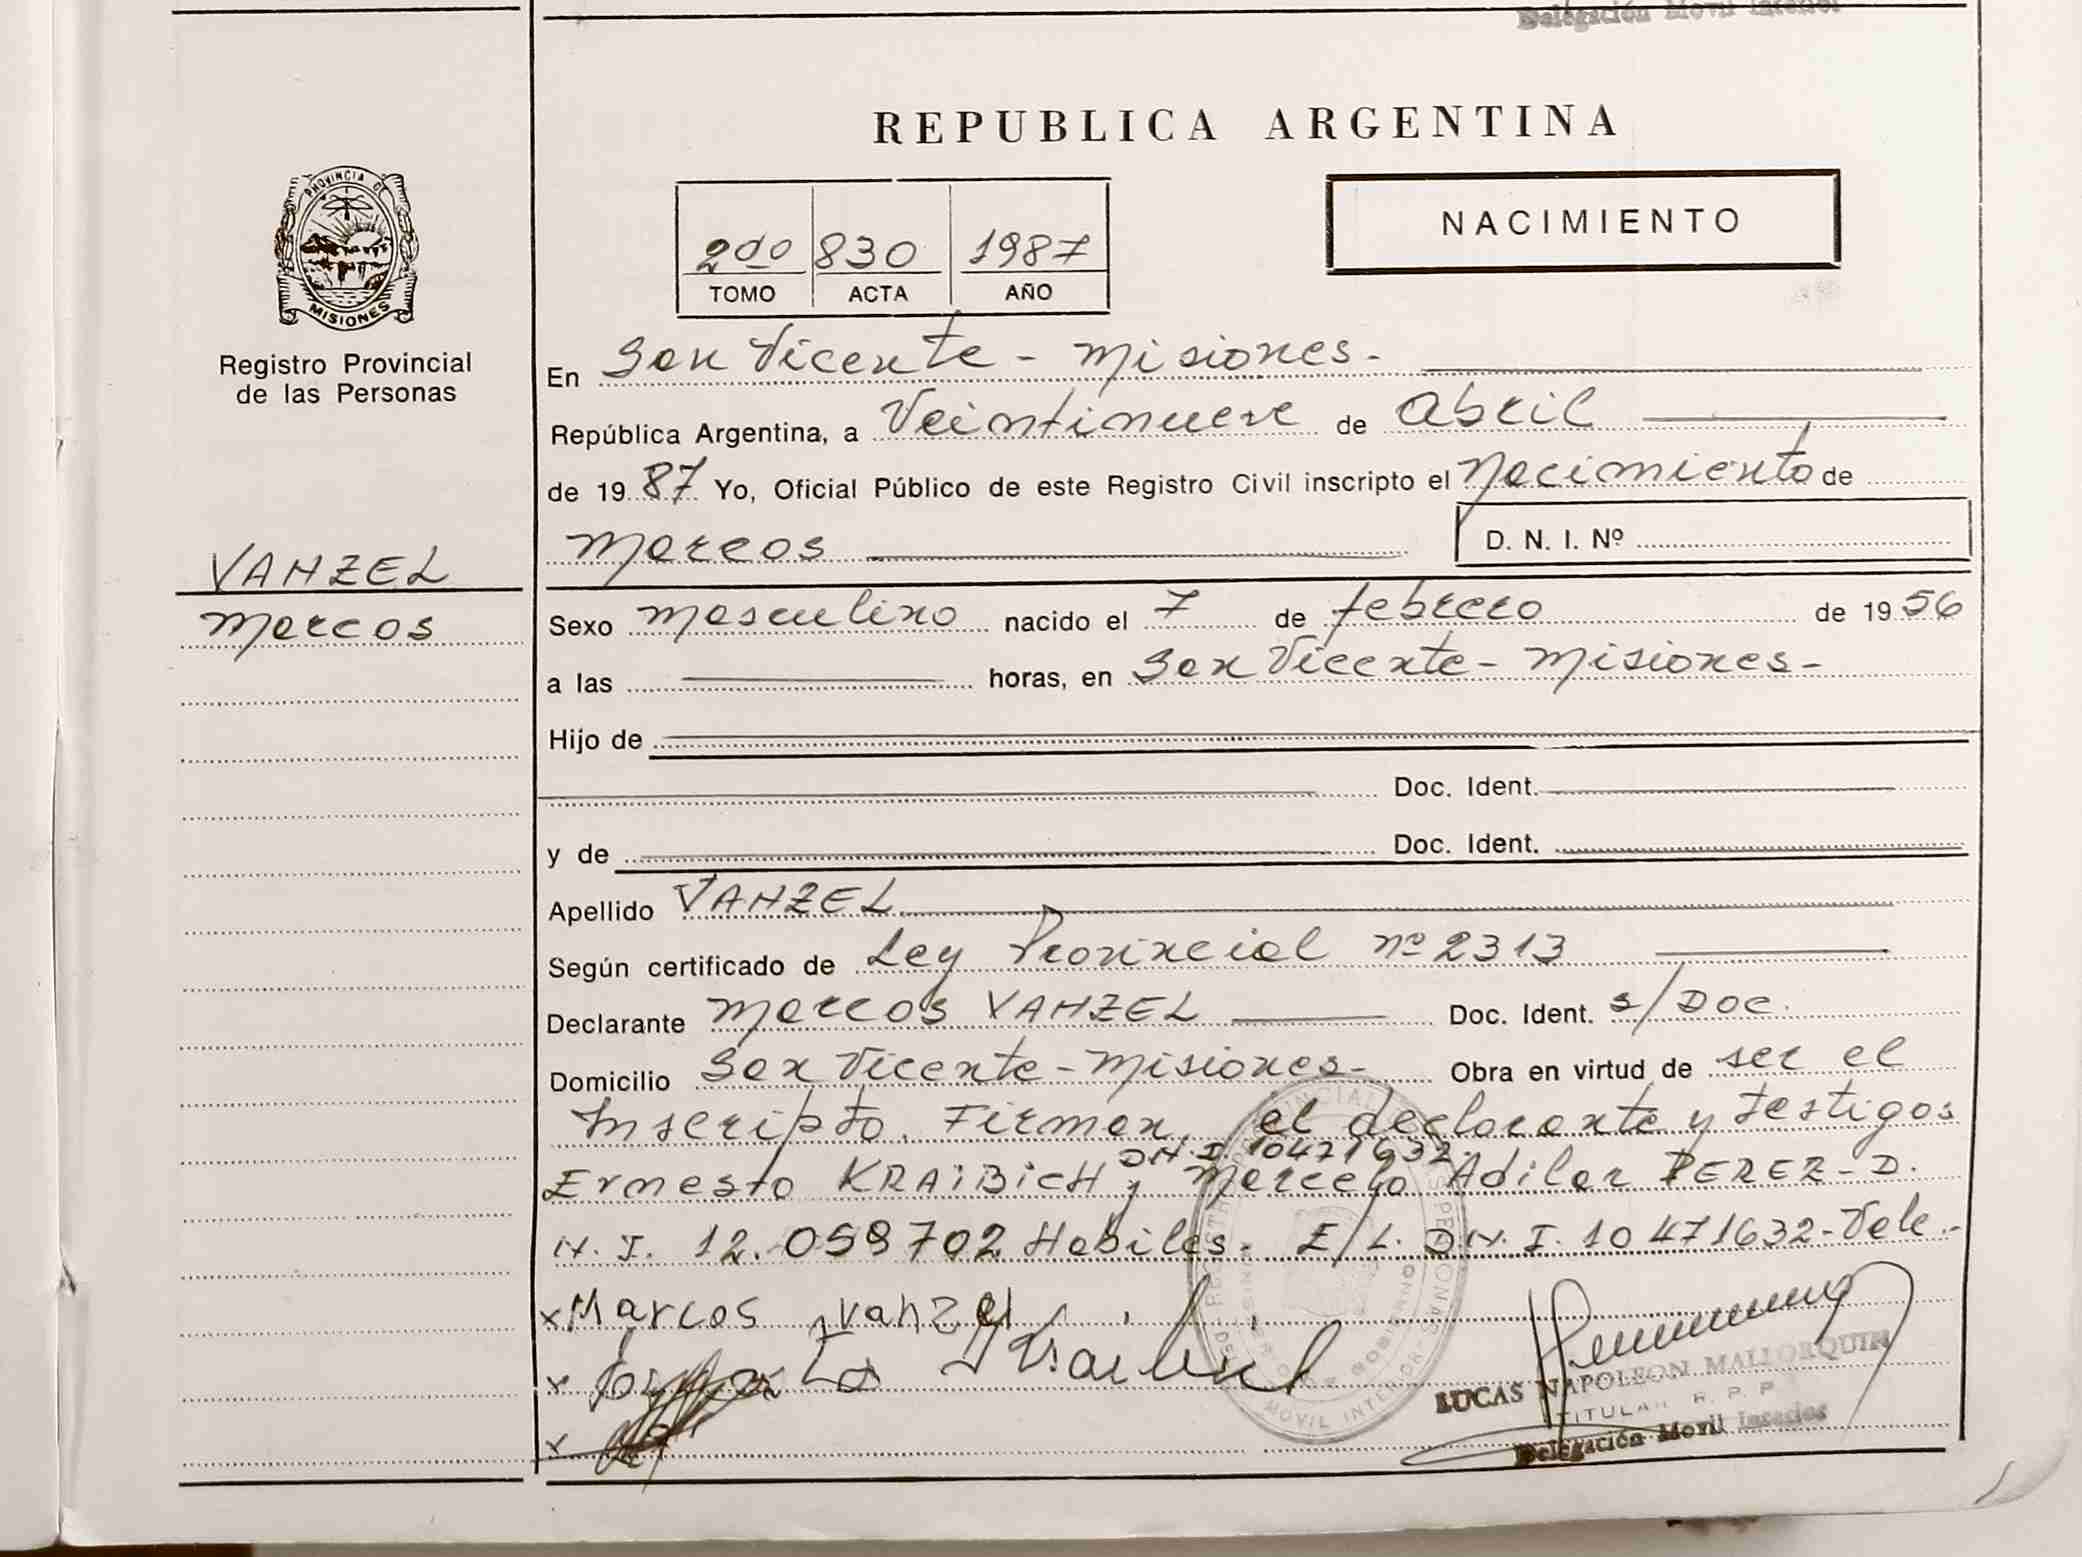 Delegación Movil Interior
REPUBLICA ARGENTINA
PROVINCIA DE
MISIONES
Registro Provincial
de las Personas
2do 830 1987
TOMO ACTA AÑO
NACIMIENTO
En San Vicente - Misiones -
República Argentina, a Veintinueve de Abril
de 1987 Yo, Oficial Público de este Registro Civil inscripto el Nacimiento de
Marcos D. N. I. Nº
VANZEL
Marcos
Sexo Masculino nacido el 7 de febrero de 1956
a las horas, en San Vicente - Misiones -
Hijo de
Doc. Ident.
y de Doc. Ident.
Apellido VANZEL
Según certificado de Ley Provincial nº 2313
Declarante Marcos VANZEL Doc. Ident. s/Doc.
Domicilio San Vicente - Misiones - Obra en virtud de ser el
Inscripto. Firman, el declarante y testigos
D.N.I. 10471632
Ernesto KRAIBICH y Marcelo Adilar PEREZ - D.
N. I. 12.059702 Habiles. E/L. D.N.I. 10471632 - Vale.-
x Marcos vanzel
x
x
LUCAS NAPOLEON MALLORQUIN
TITULAR R. P. P.
Delegación Movil Interior